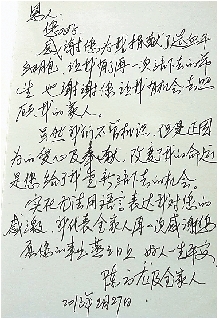 恩人:
您好!
感谢您为我捐献了造血干
细胞,让我有了再一次活下去的希
望,也谢谢您让我有机会去照
顾我的家人。
虽然我们不曾相识,但是正因
为的爱心及奉献,改变了我的命运
是您给了我重新活下去的机会。
实在无法用语言表达我对您的
感激,我代表全家人再一次感谢您
愿您的事业蒸蒸日上 好人一生平安
陈 及全家人
2012年 月27日.